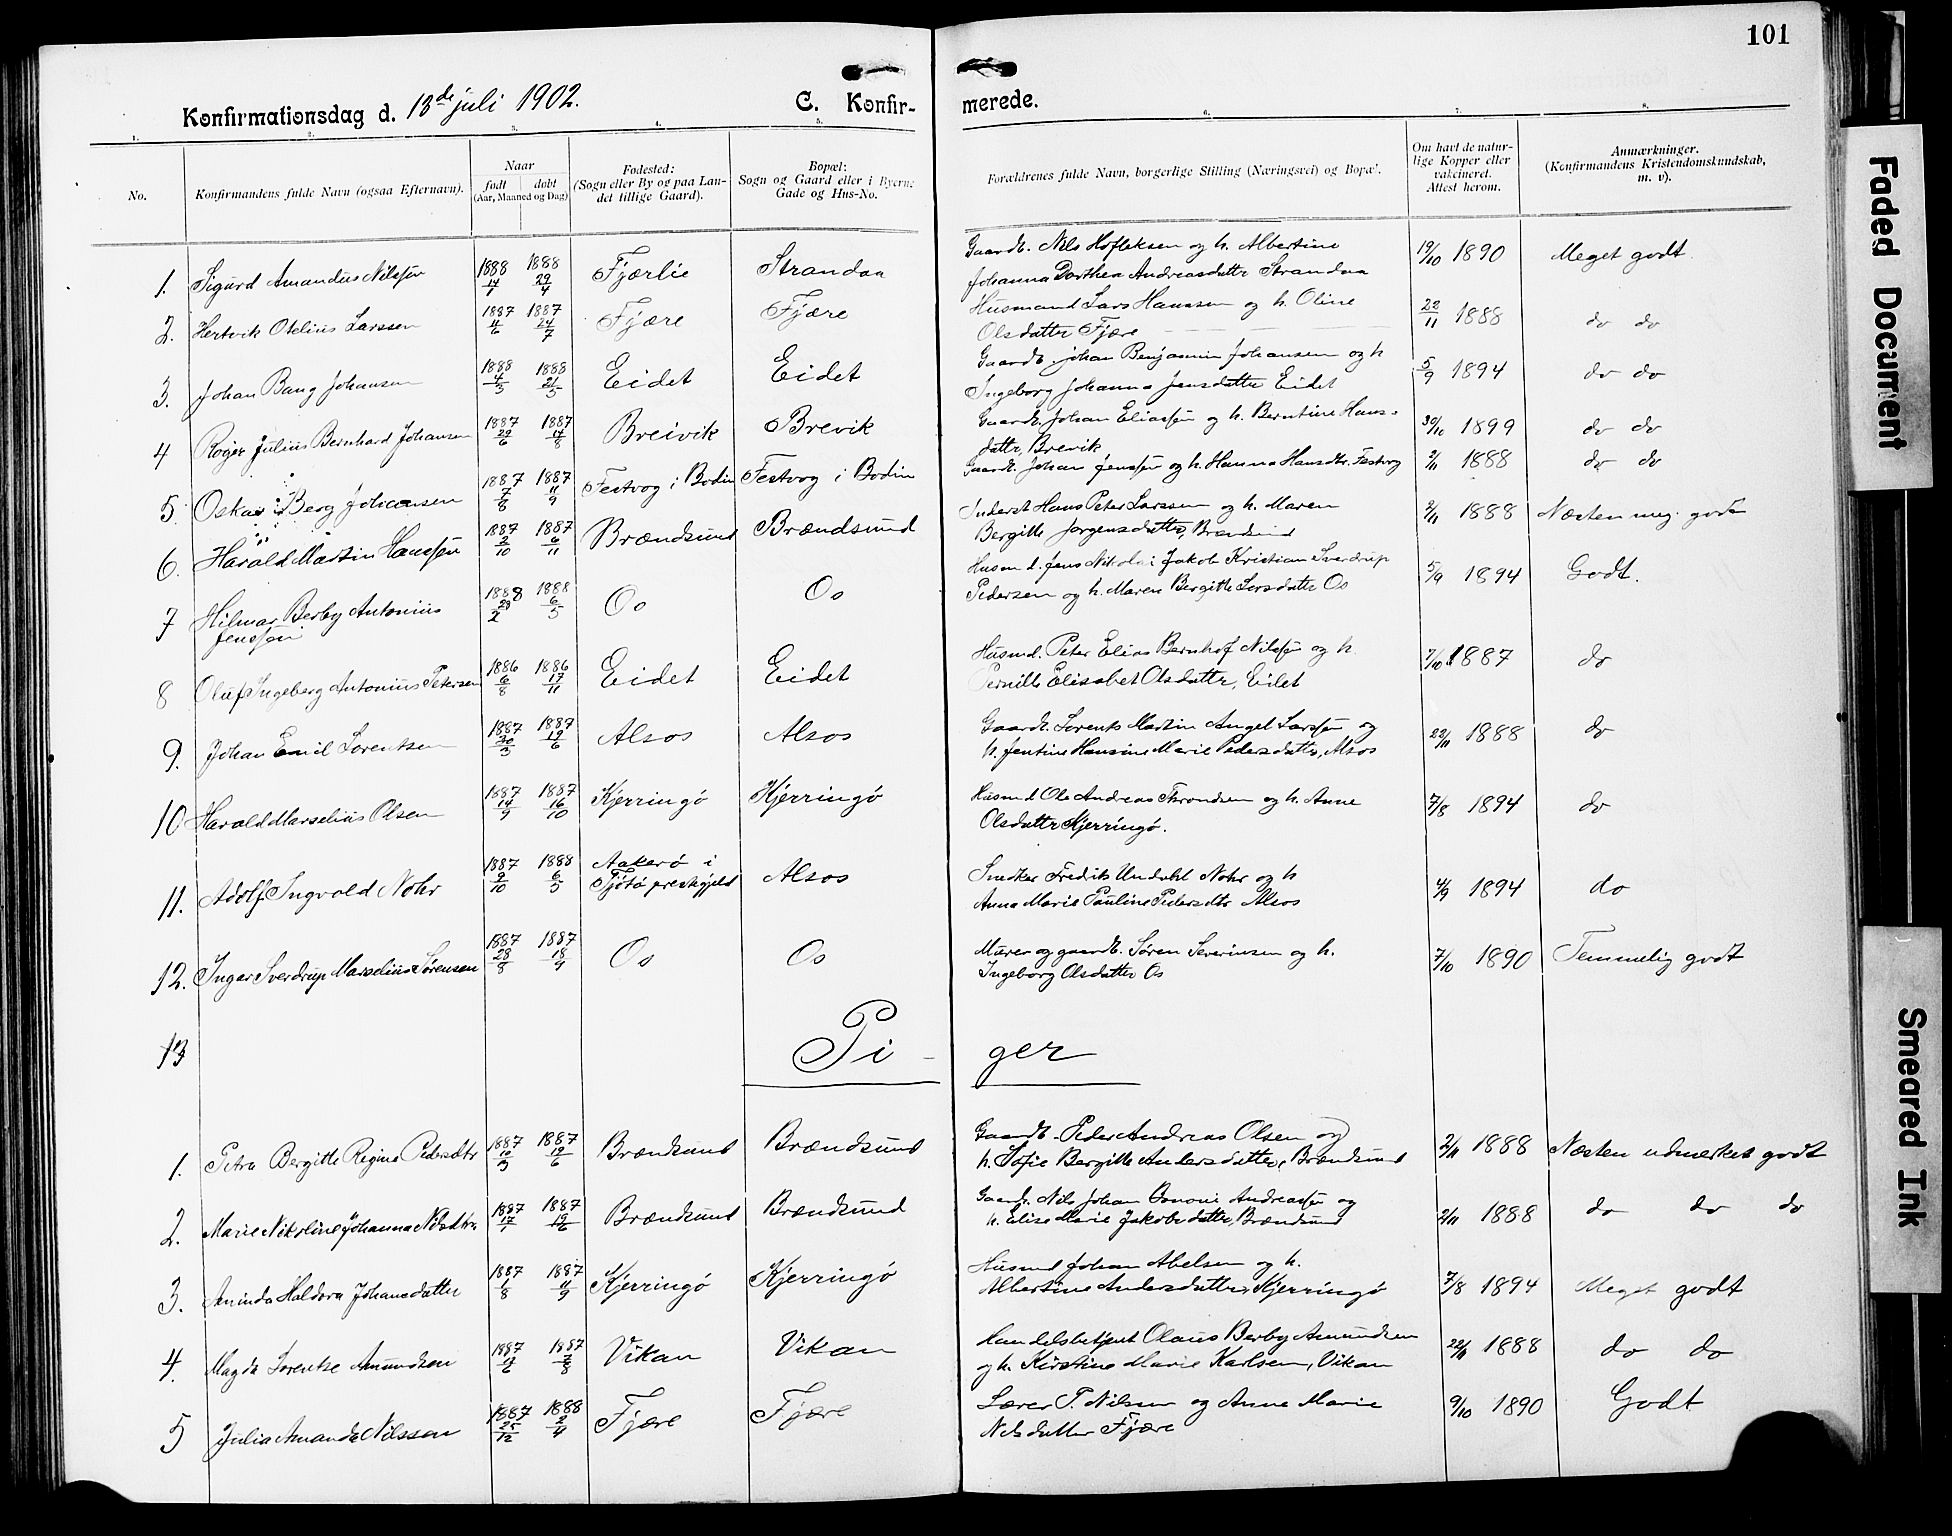 101
Konfirmationsdag d. 13de juli 1902. C. Konfir- merede.
1. 2. 3. 4. 5. 6. 7. 8.
No. Konfirmandens fulde Navn (ogsaa Efternavn). Naar født døbt (Aar, Maaned og Dag) Fødested: (Sogn eller By og paa Landet tillige Gaard). Bopæl: Sogn og Gaard eller i Byerne Gade og Hus-No. Forældrenes fulde Navn, borgerlige Stilling (Næringsvei) og Bopæl. Om havt de naturlige Kopper eller vakcineret. Attest herom. Anmærkninger. (Konfirmandens Kristendomskundskab, m. v).
1. Sigurd Amandus Nilssen 1888 14/1 1888 29/4 Fjærlie Strandaa Gaardb. Nils Hofleksen og h. Albertine
Johanna Dorthea Andreasdatter Strandaa 19/10 1890 Meget godt.
2. Hertvik Otelius Larssen 1887 4/6 1887 24/7 Fjære Fjære Husmand Lars Hanssen og h. Oline
Olsdatter Fjære 22/11 1888 do do
3. Johan Bang Johansen 1888 4/3 1888 21/5 Eidet Eidet Gaardb. Johan Benjamin Johansen og h
Ingeborg Johanna Jensdatter Eidet 5/9 1894 do do
4 Roger Julius Bernhard Johansen 1887 29/6 1887 14/8 Breivik Brevik Gaardb. Johan Eliassen og h. Berntine Hans-
datter Brevik 30/10 1899 do do
5. Oskar Berg Johansen 1887 7/8 1887 11/9 Festvog i Bodin Festvog i Bodin Gaardb. Johan Jenssen og h. Hanna Hansdtr. Festvog 2/11 1888 do do
6. Harald Martin Hanssen 1887 2/10 1887 6/11 Brændsund Brændsund Inderst Hans Peter Larssen og h. Maren
Bergitte Jørgensdatter, Brændsund 2/11 1888 Næsten meg. godt
7 Hilmar Berby Antonius
Jenssen 1888 29/2 1888 6/5 Os Os Husmd. Jens Nikolai Jakob Kristian Sverdrup
Pedersen og h. Maren Bergitte Larsdatter Os 5/9 1894 Godt.
8 Oluf Ingeberg Antonius Petersen 1886 6/8 1886 17/11 Eidet Eidet Husmd. Peter Elias Bernhof Nilssen og h.
Pernille Elisabet Olsdatter, Eidet 7/10 1887 do
9. Johan Emil Lorentsen 1887 20/3 1887 19/6 Alsos Alsos Gaardb. Lorents Martin Angel Larssen og
h. Jentine Hansine Marie Pedersdatter, Alsos 22/11 1888 do
10 Harald Marselius Olsen 1887 14/9 1887 16/10 Kjerringø Kjerringø Husmd Ole Andreas Throndsen og h. Anne
Olsdatter Kjerringø. 7/8 1894 do
11. Adolf Ingvald Nohr 1887 9/10 1888 6/5 Aakerø i
Tjøtø prestegjeld Alsos Snedker Fredrik Undahl Nohr og h
Anna Marie Pauline Pedersdtr Alsos 4/9 1894 do
12. Ingar Sverdrup Marselius Sørensen 1887 28/8 1887 18/9 Os Os Murer og gaardb. Søren Severinsen og h.
Ingeborg Olsdatter Os 7/10 1890 Temmelig godt
13 Pi- ger
1. Petra Bergitte Regine Pedersdtr 1887 10/3 1887 19/6 Brændsund Brændsund Gaardb. Peder Andreas Olsen og
h. Sofie Bergitte Andersdatter, Brændsund 2/11 1888 Næsten udmerket godt
2. Marie Nikoline Johanna Nilsdtr. 1887 17/1 1887 19/6 Brændsund Brændsund Gaardb. Nils Johan Andreassen og
h. Elise Marie Jakobsdatter, Brændsund 2/11 1888 do do do
3. Aminda Haldora Johansdatter 1887 1/8 1887 11/9 Kjerringø Kjerringø Husmd Johan Abelsen og h.
Albertine Andersdatter, Kjerringø 7/8 1894 Meget godt
4. Magda Lorentze Amundsen 1887 /6 1887 7/8 Vikan Vikan Handelsbetjent Olaus Berby Amundsen
og h. Kirstine Marie Karlsen, Vikan 22/11 1888 do do
5 Julia Amanda Nilssen 1887 25/12 1888 2/4 Fjære Fjære Lærer T. Nilsen og Anne Marie
Nilsdatter Fjære 9/10 1890 Godt
Faded Document
Smeared Ink